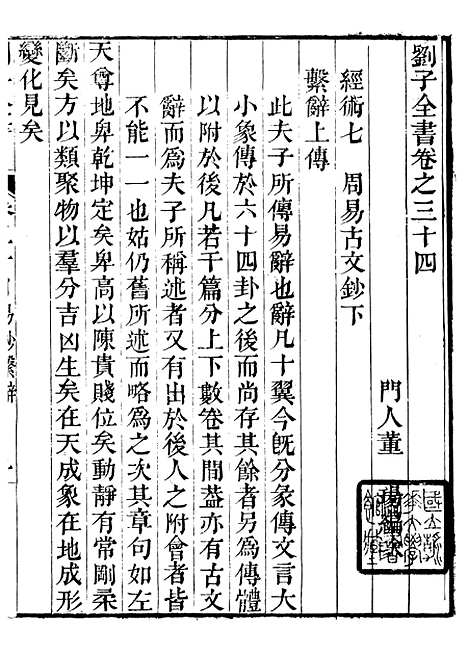 劉子全書卷之三十四
門人董瑒編次
經術七　周易古文鈔下
繫辭上傳
此夫子所傳易辭也辭凡十翼今旣分彖傳文言大
小象傳於六十四卦之後而尚存其餘者另爲傳體
以附於後凡若干篇分上下數卷其間葢亦有古文
辭而爲夫子所稱述者又有出於後人之附會者皆
不能一一也姑仍舊所傳而略爲之次其章句如左
天尊地卑乾坤定矣卑高以陳貴賤位矣動靜有常剛柔
斷矣方以類聚物以羣分吉凶生矣在天成象在地成形
變化見矣